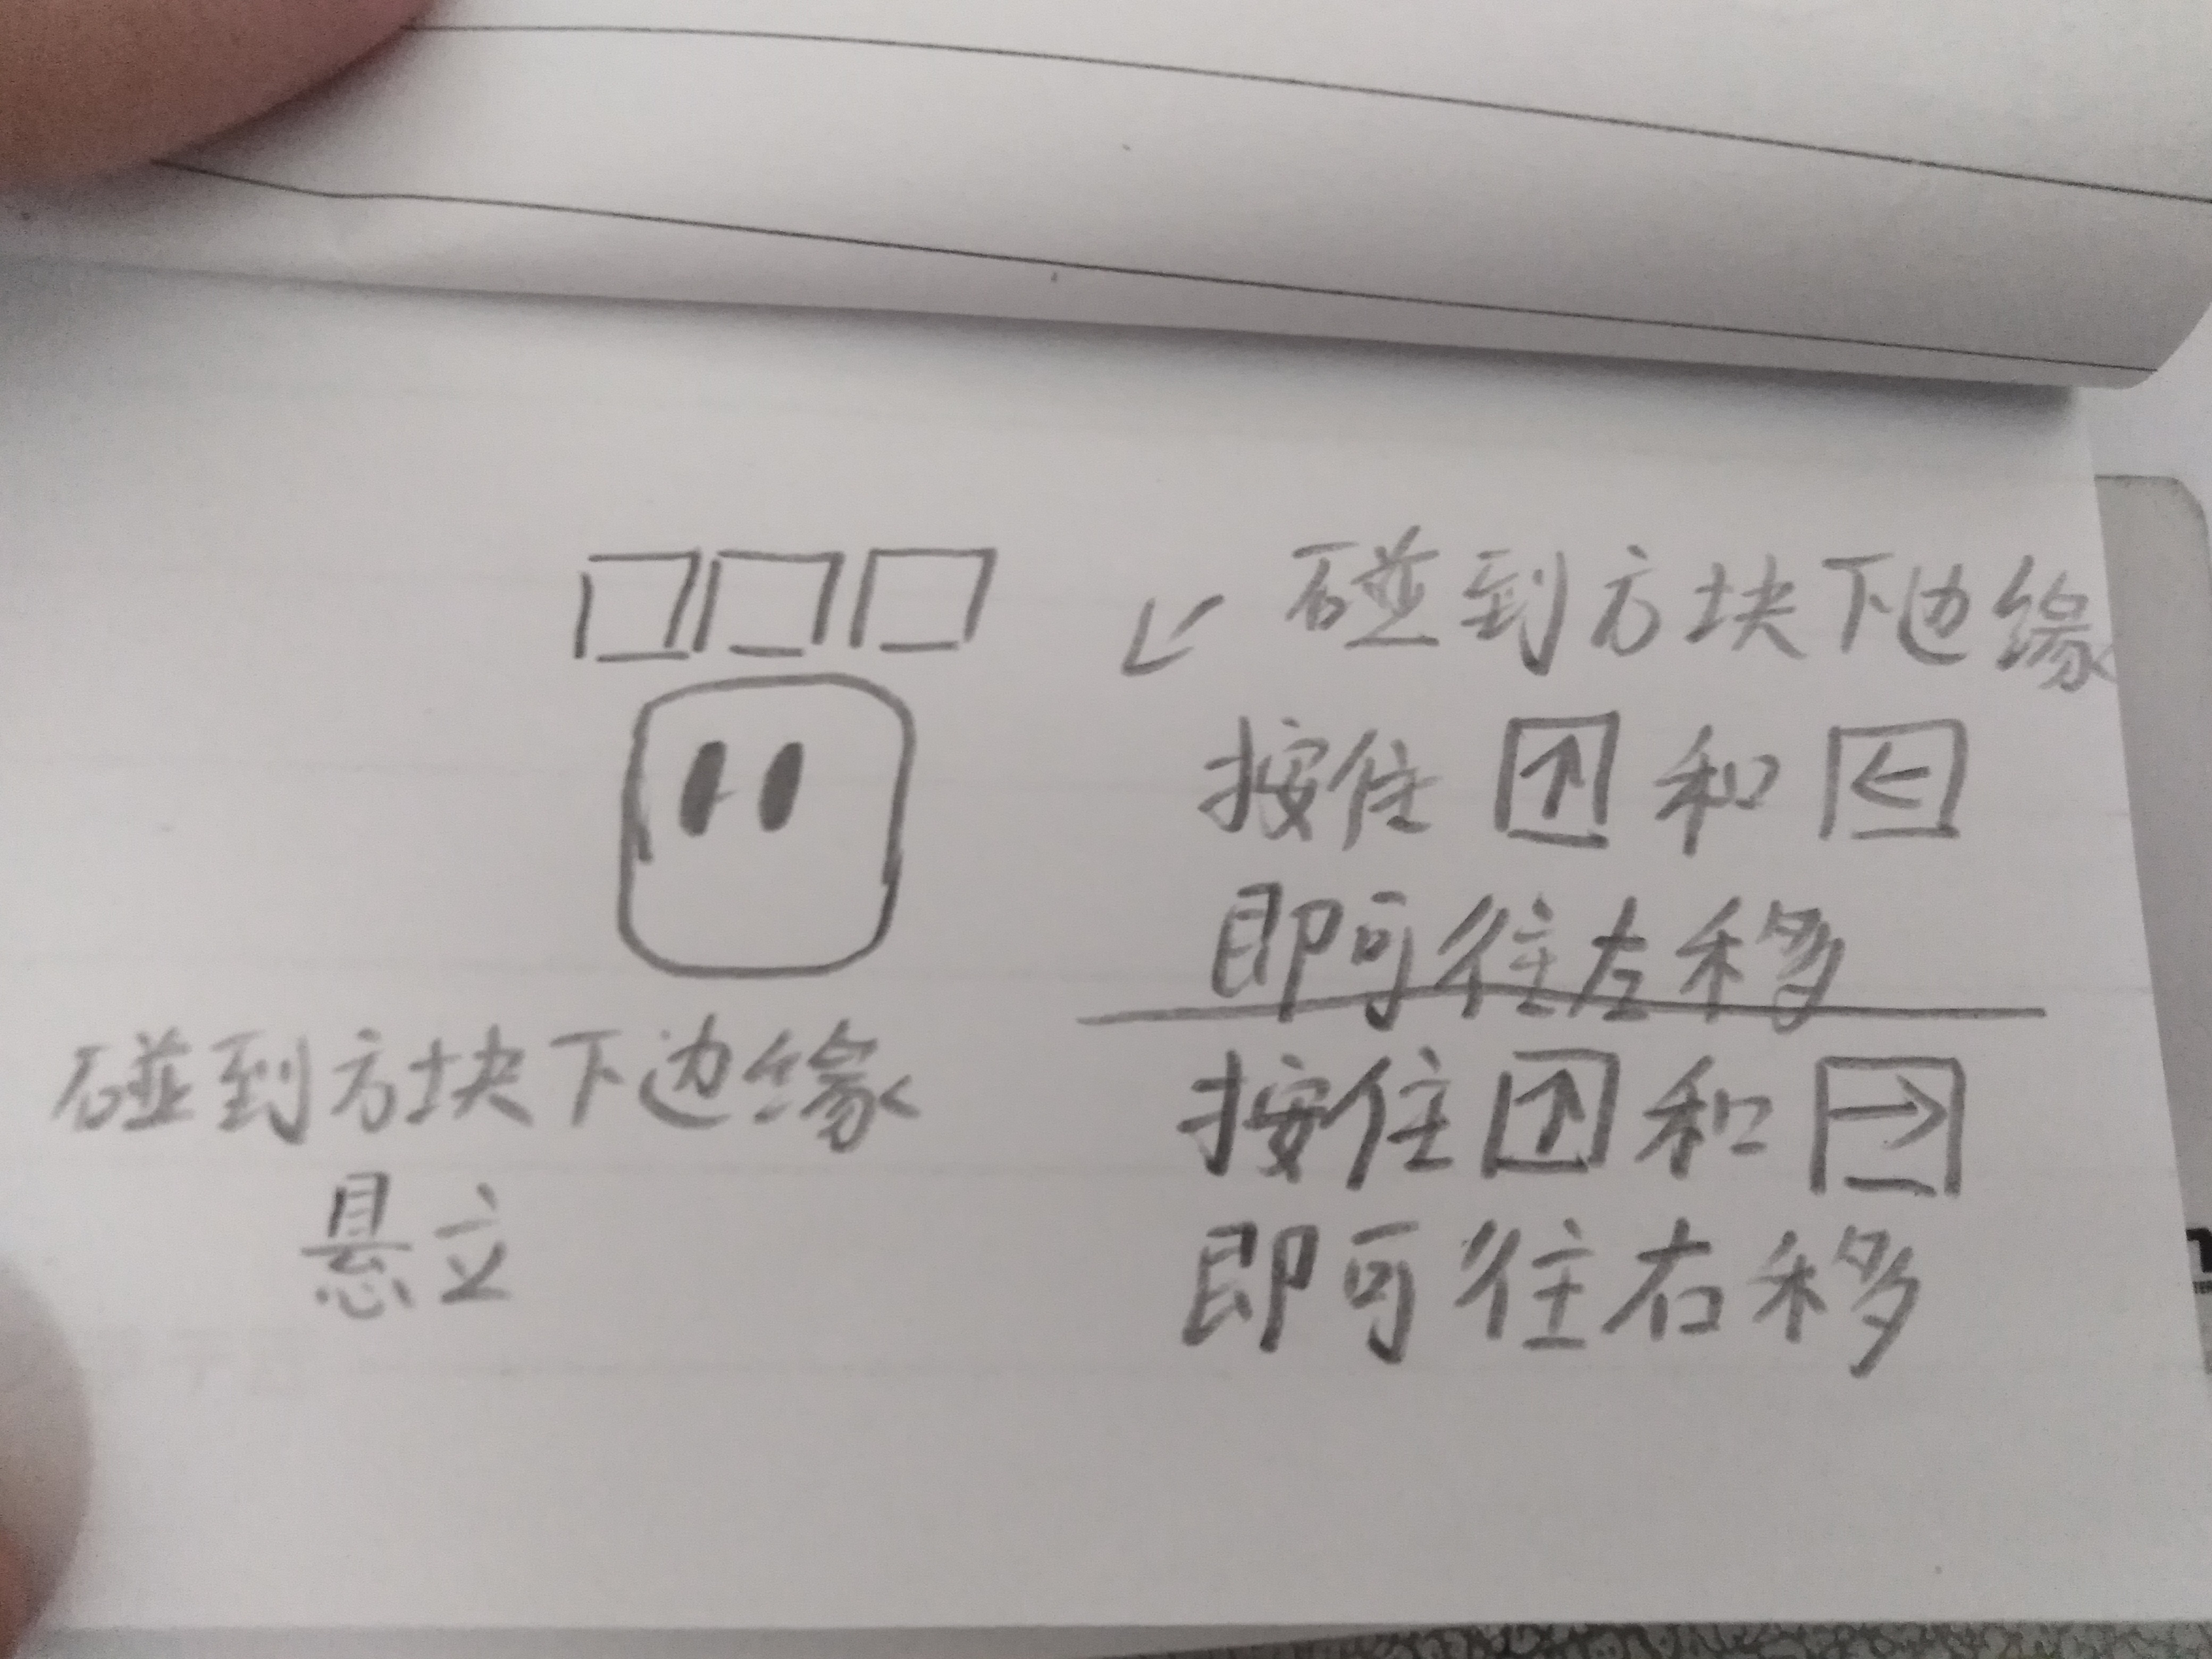 碰到方块下边缘
按住↑和←
即可往左移
按住↑和→
即可往右移
碰到方块下边缘
悬立